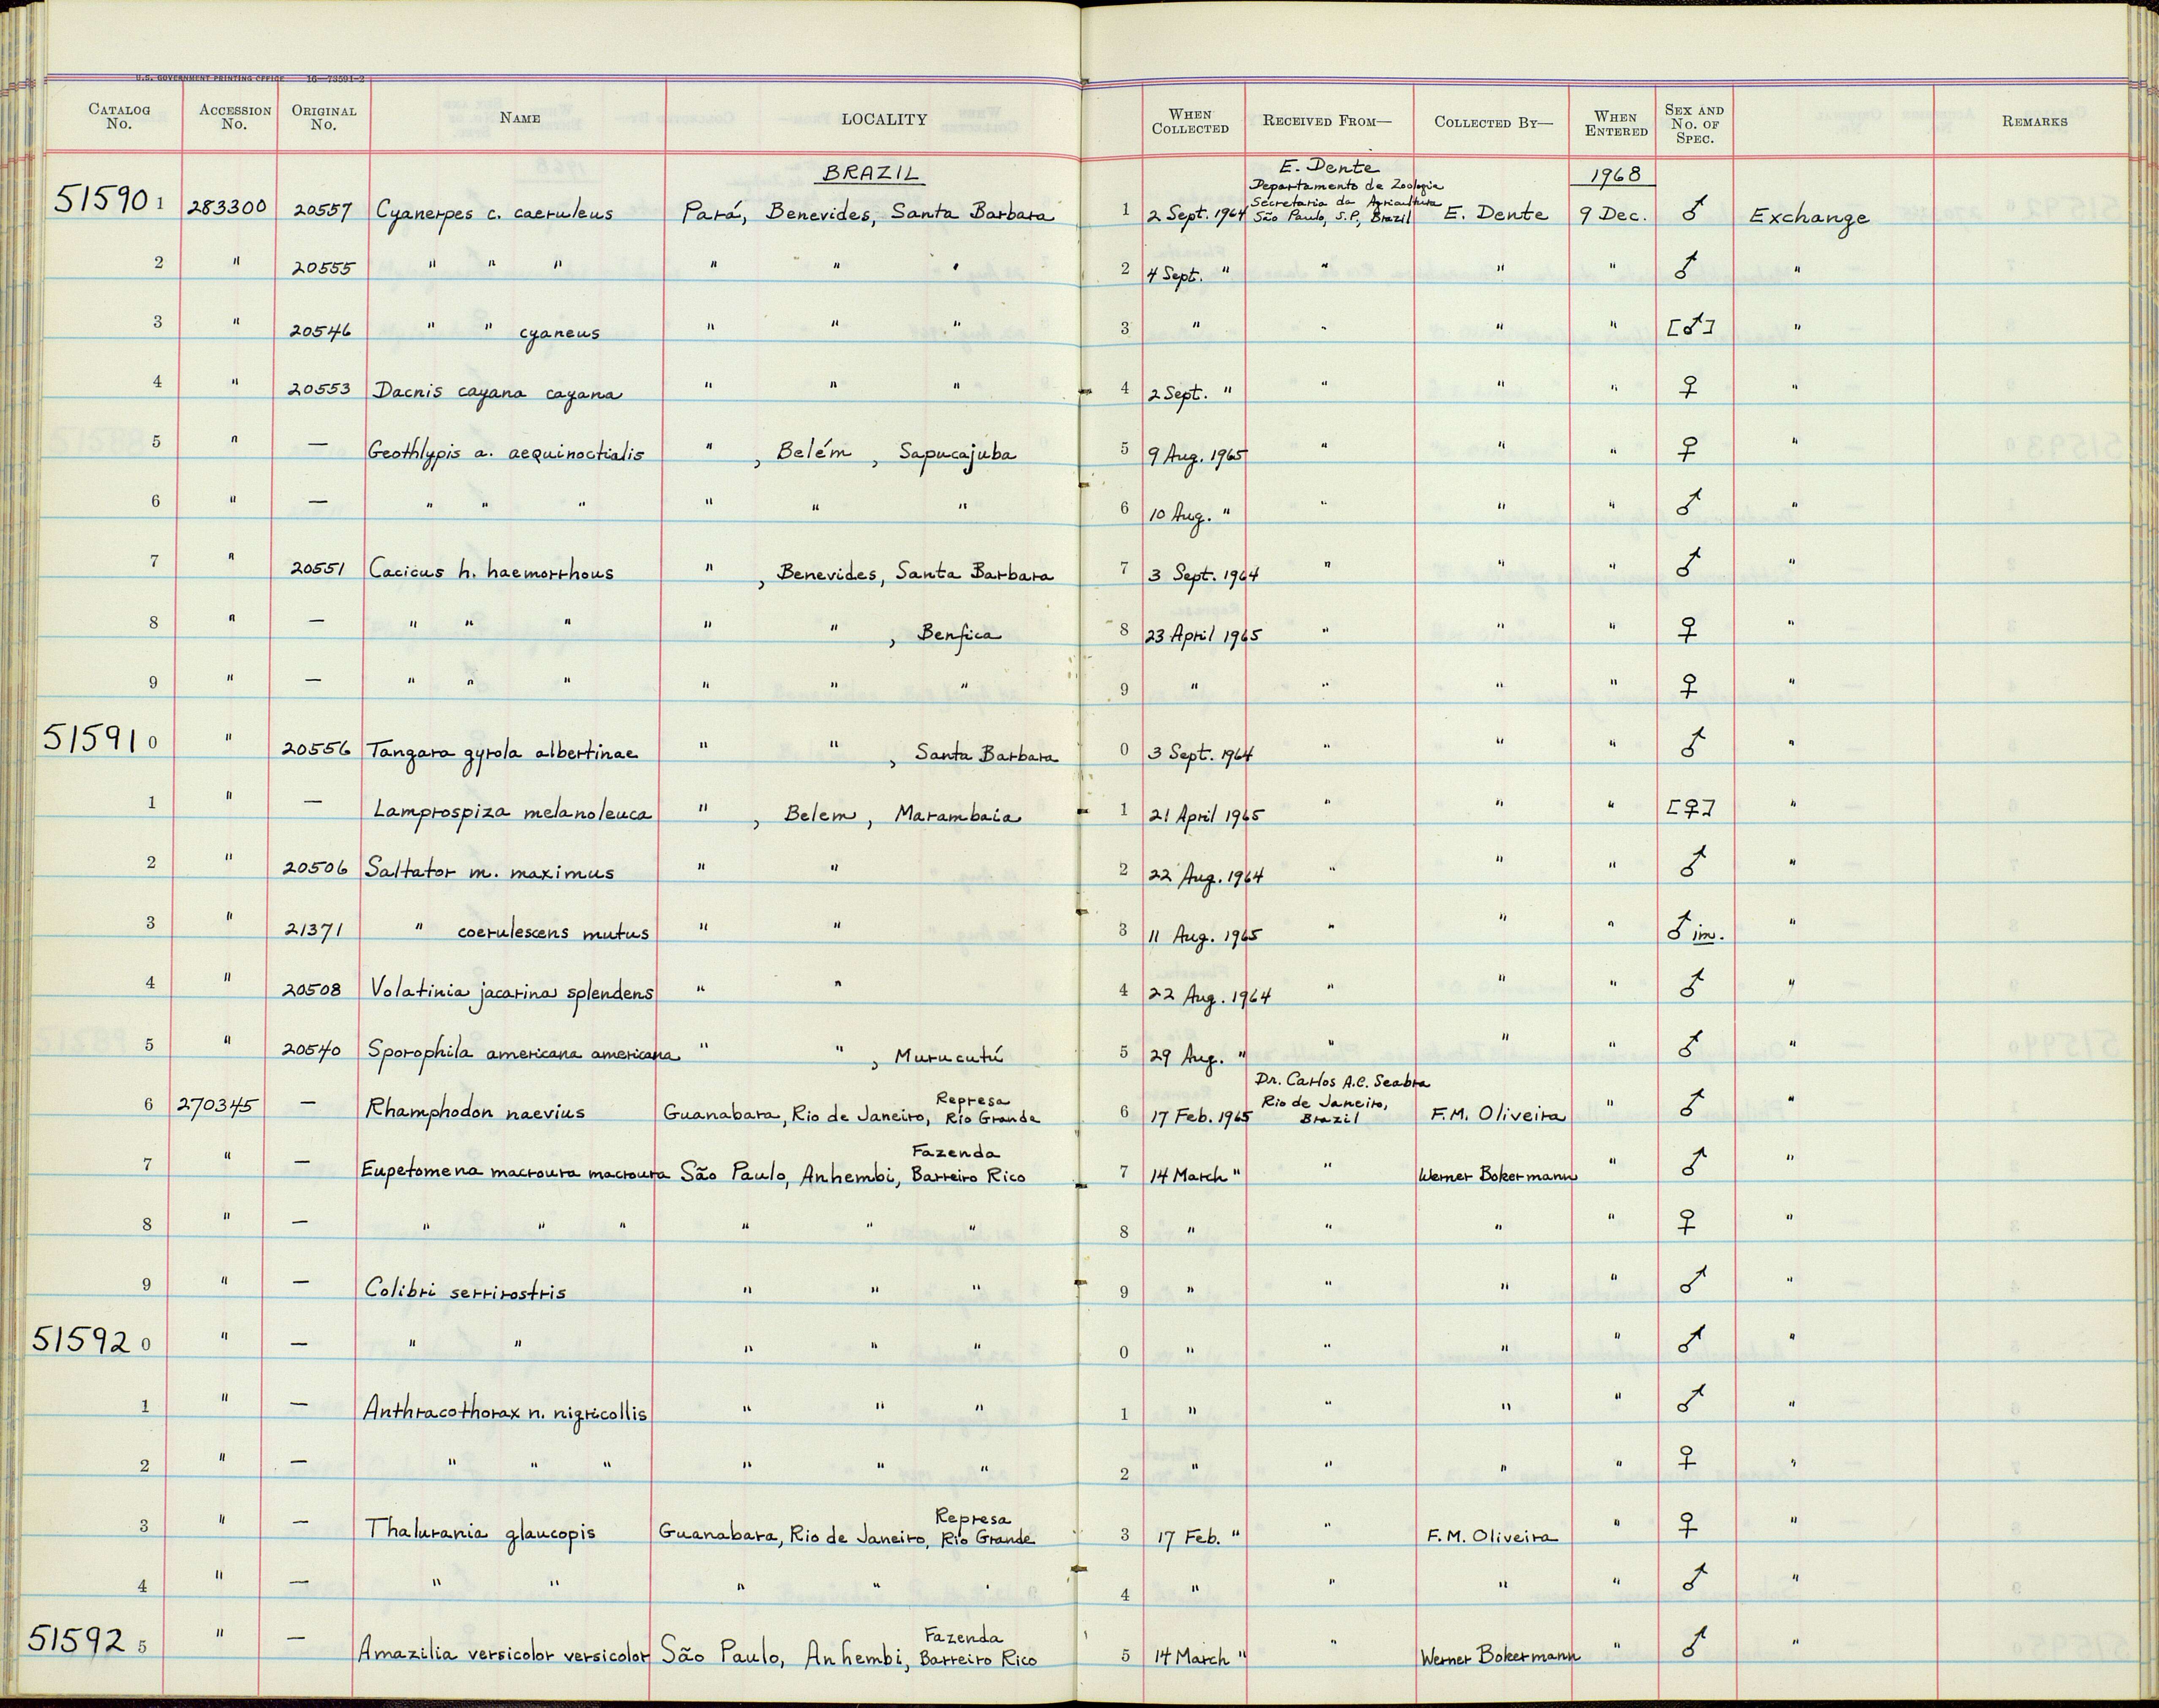 U.S. GOVERNMENT PRINTING OFFICE 16—73591-2
CATALOG No. ACCESSION No. ORIGINAL No. NAME LOCALITY WHEN COLLECTED RECEIVED FROM— COLLECTED BY— WHEN ENTERED SEX AND No. OF SPEC. REMARKS
BRAZIL E. Dente 1968
Departamento de Zoologia
Secretaria da Agricultura
515901 283300 20557 Cyanerpes c. caeruleus Pará, Benevides, Santa Barbara 1 2 Sept. 1964 São Paulo, S.P., Brazil E. Dente 9 Dec. ♂ Exchange
2 " 20555 " " " " " " 2 4 Sept. " " " " ♂ "
3 " 20546 " " cyaneus " " " 3 " " " " [♂] "
4 " 20553 Dacnis cayana cayana " " " 4 2 Sept. " " " " ♀ "
5 " — Geothlypis a. aequinoctialis " , Belém , Sapucajuba 5 9 Aug. 1965 " " " ♀ "
6 " — " " " " " " 6 10 Aug. " " " " ♂ "
7 " 20551 Cacicus h. haemorrhous " , Benevides, Santa Barbara 7 3 Sept. 1964 " " " ♂ "
8 " — " " " " " , Benfica 8 23 April 1965 " " " ♀ "
9 " — " " " " " " 9 " " " " ♀ "
515910 " 20556 Tangara gyrola albertinae " " , Santa Barbara 0 3 Sept. 1964 " " " ♂ "
1 " — Lamprospiza melanoleuca " , Belem, Marambaia 1 21 April 1965 " " " [♀] "
2 " 20506 Saltator m. maximus " " 2 22 Aug. 1964 " " " ♂ "
3 " 21371 " coerulescens mutus " " 3 11 Aug. 1965 " " " ♂ im. "
4 " 20508 Volatinia jacarina splendens " " 4 22 Aug. 1964 " " " ♂ "
5 " 20540 Sporophila americana americana " " , Murucutú 5 29 Aug. " " " " ♂ "
Dr. Carlos A.C. Seabra
Represa Rio de Janeiro,
6 270345 — Rhamphodon naevius Guanabara, Rio de Janeiro, Rio Grande 6 17 Feb. 1965 Brazil F.M. Oliveira " ♂ "
Fazenda
7 " — Eupetomena macroura macroura São Paulo, Anhembi, Barreiro Rico 7 14 March " " Werner Bokermann " ♂ "
8 " — " " " " " " 8 " " " " ♀ "
9 " — Colibri serrirostris " " " 9 " " " " ♂ "
515920 " — " " " " " 0 " " " " ♂ "
1 " — Anthracothorax n. nigricollis " " " 1 " " " " ♂ "
2 " — " " " " " " 2 " " " " ♀ "
Represa
3 " — Thalurania glaucopis Guanabara, Rio de Janeiro, Rio Grande 3 17 Feb. " " F.M. Oliveira " ♀ "
4 " — " " " " " 4 " " " " ♂ "
Fazenda
515925 " — Amazilia versicolor versicolor São Paulo, Anhembi, Barreiro Rico 5 14 March " " Werner Bokermann " ♂ "